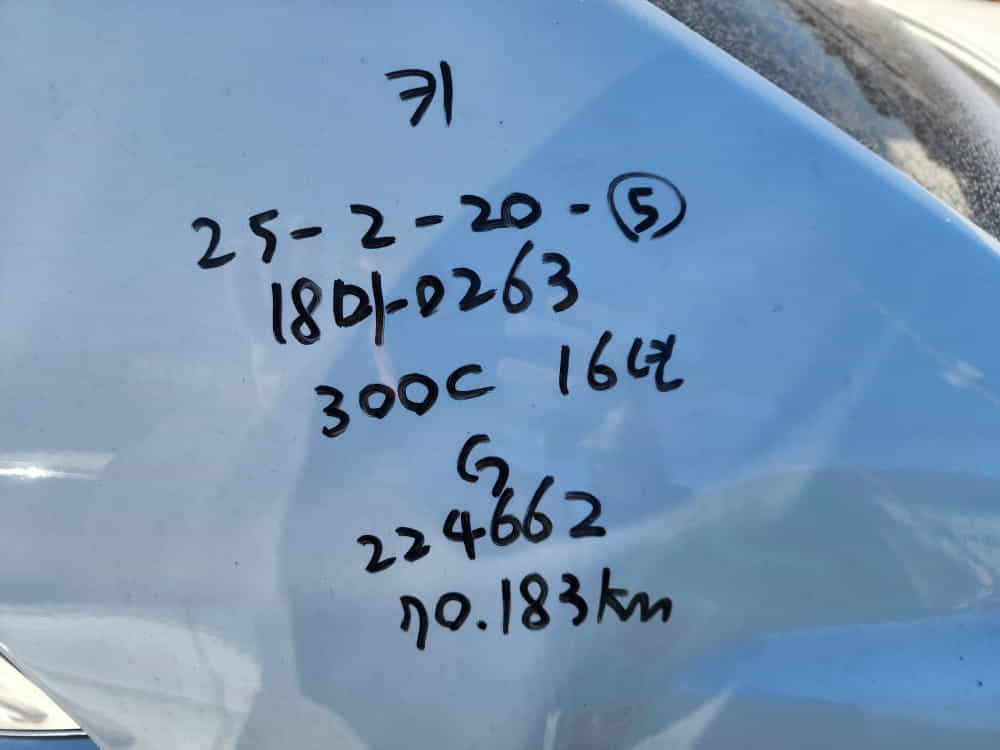 키
25-2-20-⑤
18마0263
300C 16년
G
224662
70.183km